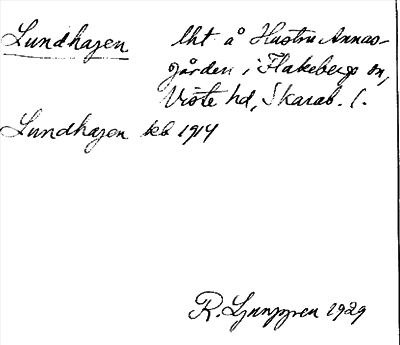 Lundhagen lht å Hustru Annas-
gården i Flakebergs sn,
Viste hd, Skarab. l.
Lundhagen kb 1914
R. Ljunggren 1929